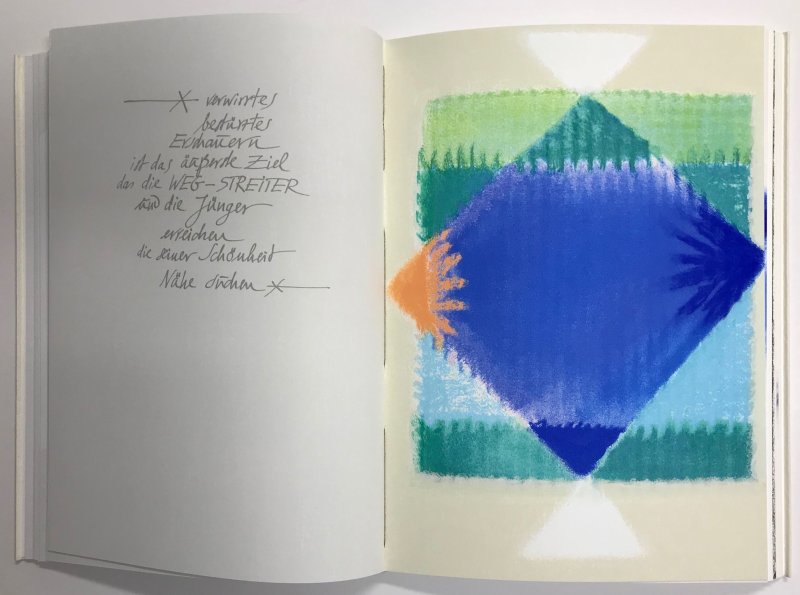 verwirrtes
bestürztes
Erschauern
ist das äußerste Ziel
das die WEG-STREITER
und die Jünger
erreichen
die seiner Schönheit
Nähe suchen